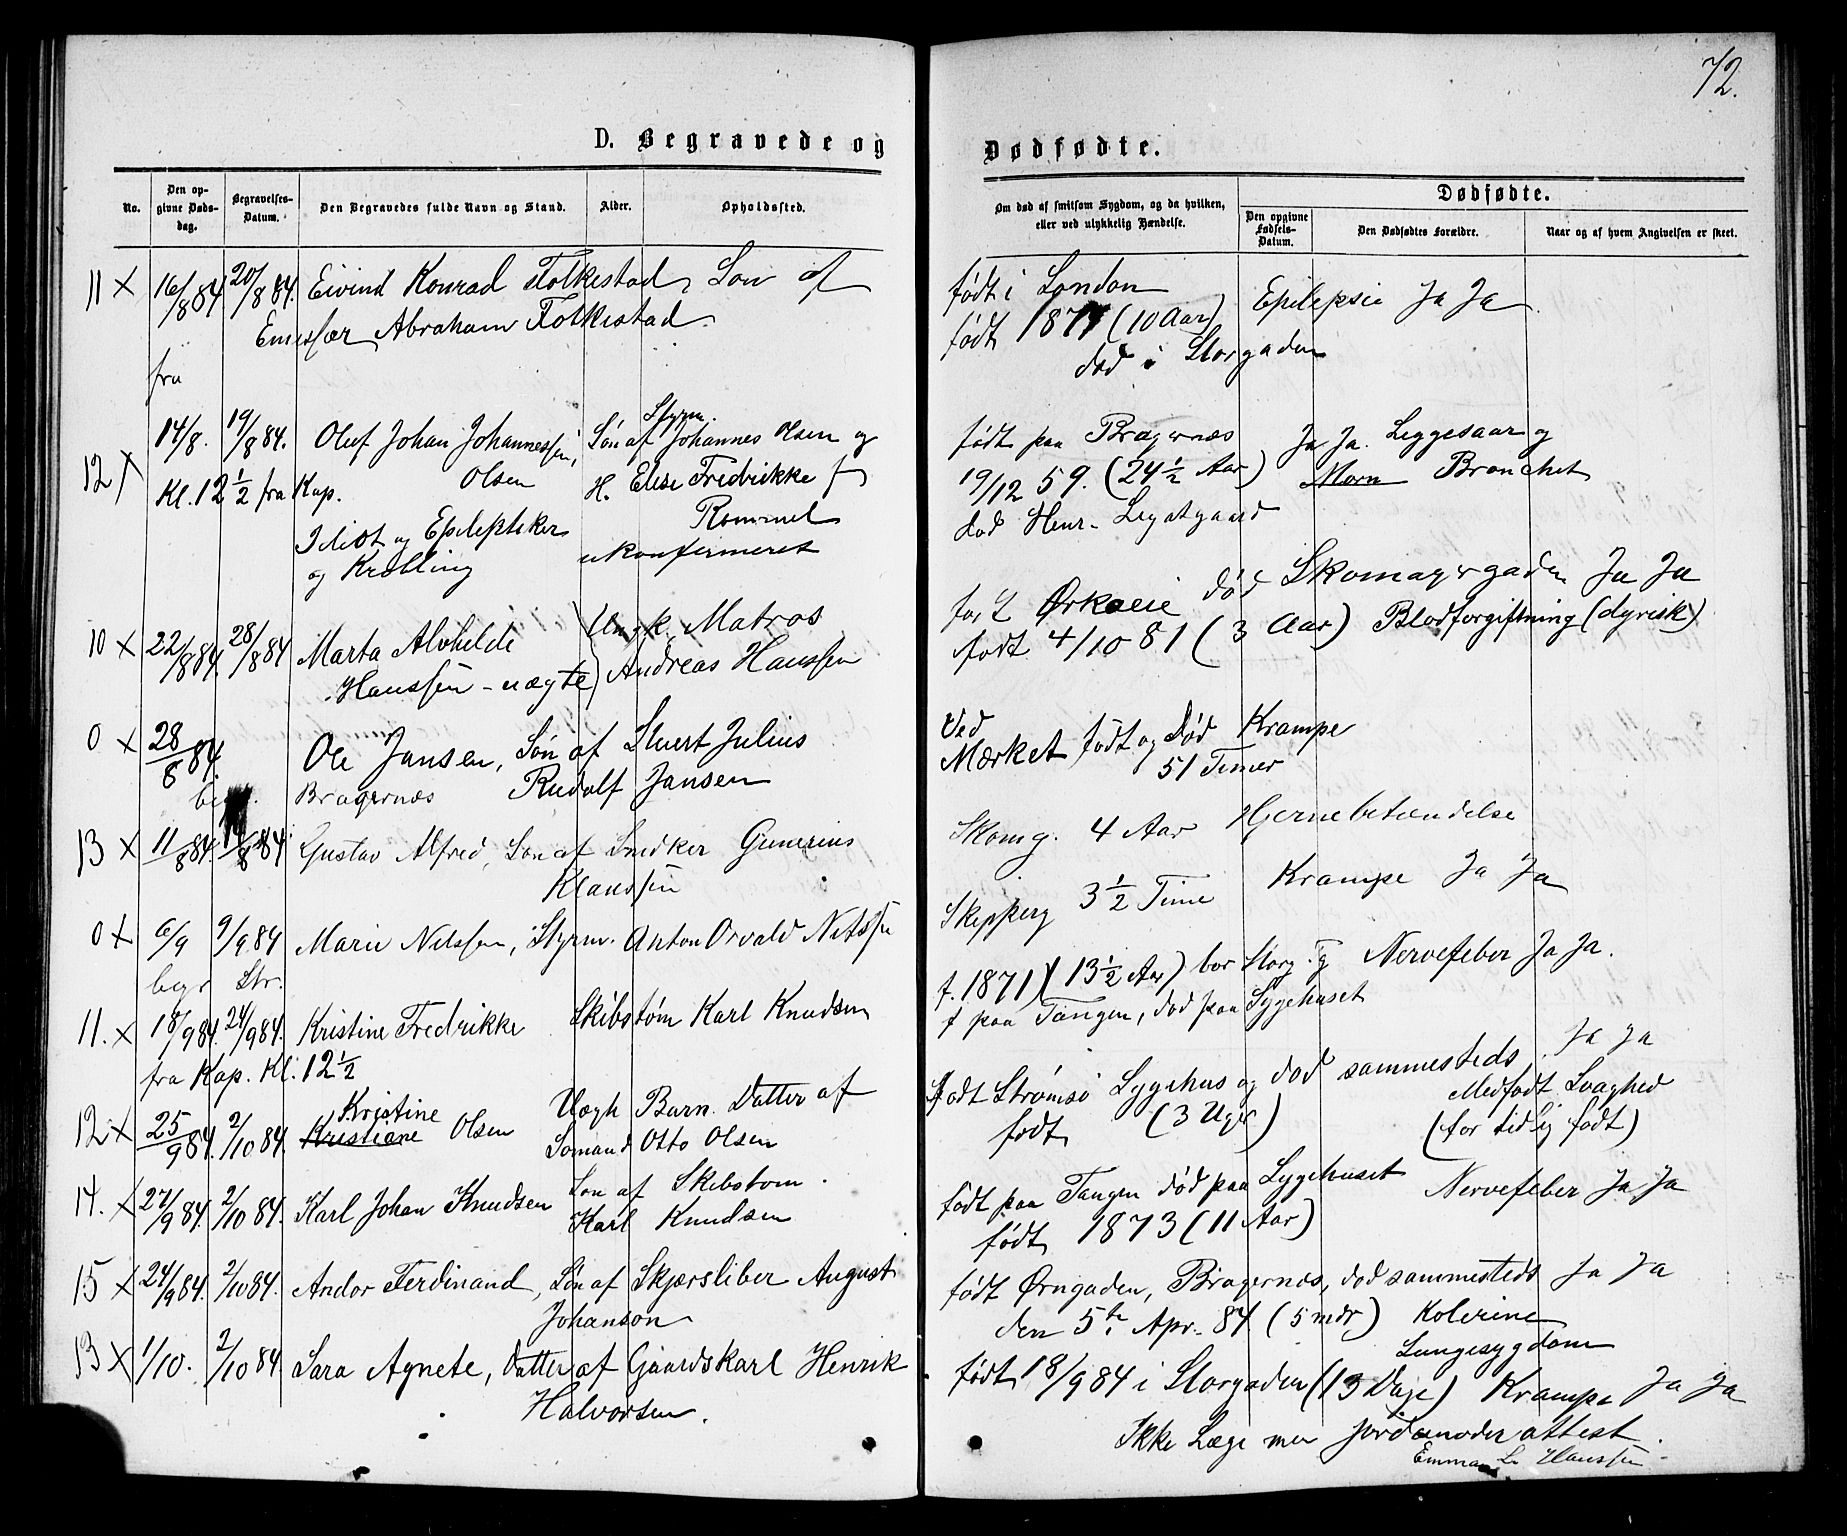 72.
D. Begravede og Dødfødte.
No.
Den opgivne Dødsdag.
Begravelses-Datum.
Den Begravedes fulde Navn og Stand.
Alder.
Opholdssted.
Om død af smitsom Sygdom, og da hvilken, eller ved ulykkelig Hændelse.
Dødfødte.
Den opgivne Fødsels-Datum.
Den Dødfødtes Forældre.
Naar og af hvem Angivelsen er skeet.
11 X 16/8 84 20/8 84. Eivind Konrad Folkestad, Søn af
Abraham Folkestad.
fra
født i London
født 1874 (10 Aar) Epilepsie Ja Ja
død i Storgaden
12 X 14/8. 19/8 84. Oluf Johan Johannessen, Søn af Styrm. Johannes Olsen og
Kl. 12 1/2 fra Kap. Olsen H. Elise Fredrikke f
Idiot og Epileptiker Rommel
og Krøbling ukonfirmeret
født paa Bragernæs Ja Ja. Leggesaar og
19/12 59. (24 1/2 Aar) Morn Bronchet
død Henr. Legatgaard
10 X 22/8 84. 28/8 84 Marta Alvhelde Ungk. Matros
Hanssen - uægte Andreas Hanssen
død Skomagergaden Ja Ja
født 4/10 81 (3 Aar) Blodforgiftning (dyrisk)
0 X 28/8 84. Ole Jansen, Søn af Stuert Julius
begr. Bragernæs Rudolf Jansen
Ved
Mærket født og Død Krampe
51 Timer
13 X 11/8 84. 14/8 84 Gustav Alfred, Søn af Snedker Gunerius
Klaussen
Skomg. 4 Aar Hjernebetændelse
0 X 6/9 9/9 84 Marie Nilssen, Styrm. Anton Osvald Nilssen
begr Str.
Skepperg 3 1/2 Time Krampe Ja Ja
11. X 18/9 84. 24/9 84. Kristine Fredrikke Skibstøm Karl Knudsen
fra Kap. Kl. 12 1/2
f. 1871 (13 1/2 Aar) bor Storg. Nervefeber Ja Ja.
f paa Tangen, død paa Sygehuset
12 X 25/9 84. 2/10 84. Kristine Kristiane Olsen Uægte Barn. Datter af
Sømand Otto Olsen
Født Strømsø Sygehus og død sammesteds. Ja Ja
født (3 Uger) Medfødt Svaghed
(for tidlig født)
14. X 27/9 84. 2/10 84. Karl Johan Knudsen Søn af Skibstøm.
Karl Knudsen
født paa Tangen død paa Sygehuset Nervefeber Ja Ja
født 1873 (11 Aar)
15 X 24/9 84. 2/10 84. Andor Ferdinand, Søn af Skjærsliber August
Johanson
født Ørngaden, Bragernæs, død sammesteds Ja Ja
den 5te Apr. 84 (5 mdr) Kolerine
13 X 1/10. 2/10 84. Sara Agnete, Datter af Gaardskarl Henrik
Halvorsen.
Lungesygdom
født 18/9 84 i Storgaden (13 Dage) Krampe Ja Ja
Ikke Læge men Jordemoder attest.
Emma L. Hanssen